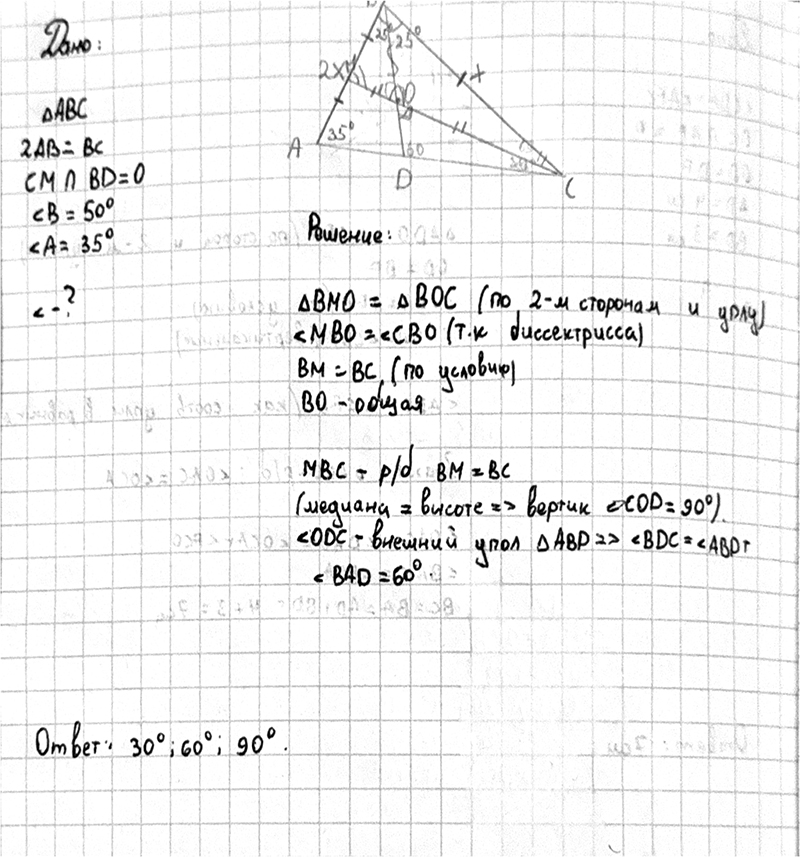 Дано:
△ABC
2AB = BC
CM ∩ BD = O
∠B = 50°
∠A = 35°
∠ - ?
25° 25°
2x M
x
O
A 35°
60
D
C
Решение:
△BMO = △BOC (по 2-м сторонам и углу)
∠MBO = ∠CBO (т.к биссектрисса)
BM = BC (по условию)
BO - общая
MBC - р/б BM = BC
(медиана = высоте => вертик ∠COD = 90°).
∠ODC - внешний упол △ABD => ∠BDC = ∠ABD+
∠BAD = 60°
Ответ: 30°; 60°; 90°.